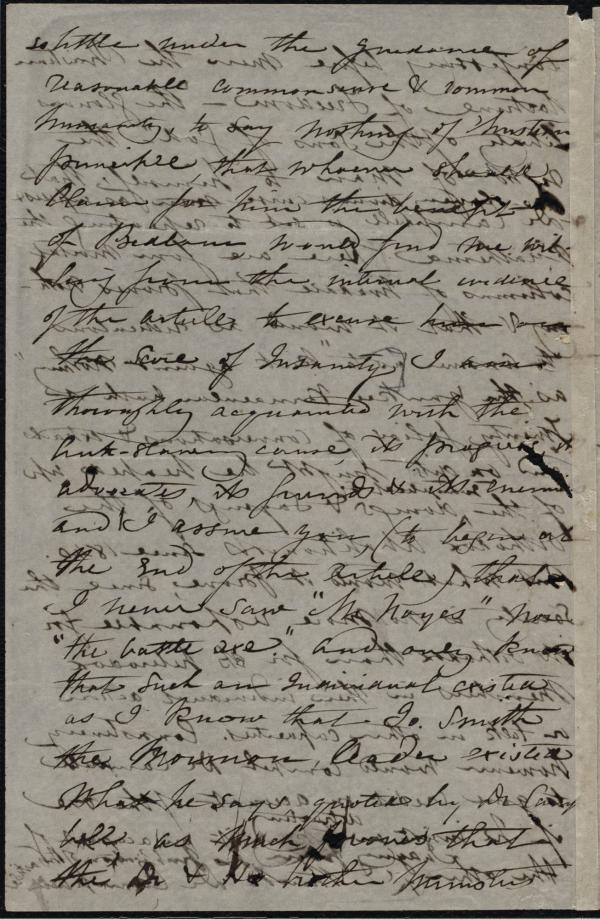 so little under the guidance of
reasonable common sense & common
humanity, to say nothing of Christian
principle, that whoever should
claim for him the benefit
of Bedlam would find me wil-
ling from the internal evidence
of the article to excuse him on
the score of Insanity. I am
thoroughly acquainted with the
Anti-slavery cause, its progress, its
advocates, its friends & its enemies
and I assure you (to begin at
the End of the Article) that
I never saw "Mr Noyes" nor
"the battle axe" and only know
that such an Individual existed
as I know that Jo. Smith
the Mormon leader existed
What he says quoted by Dr Camp
bell as much proves that
the Dr & his brother Ministers